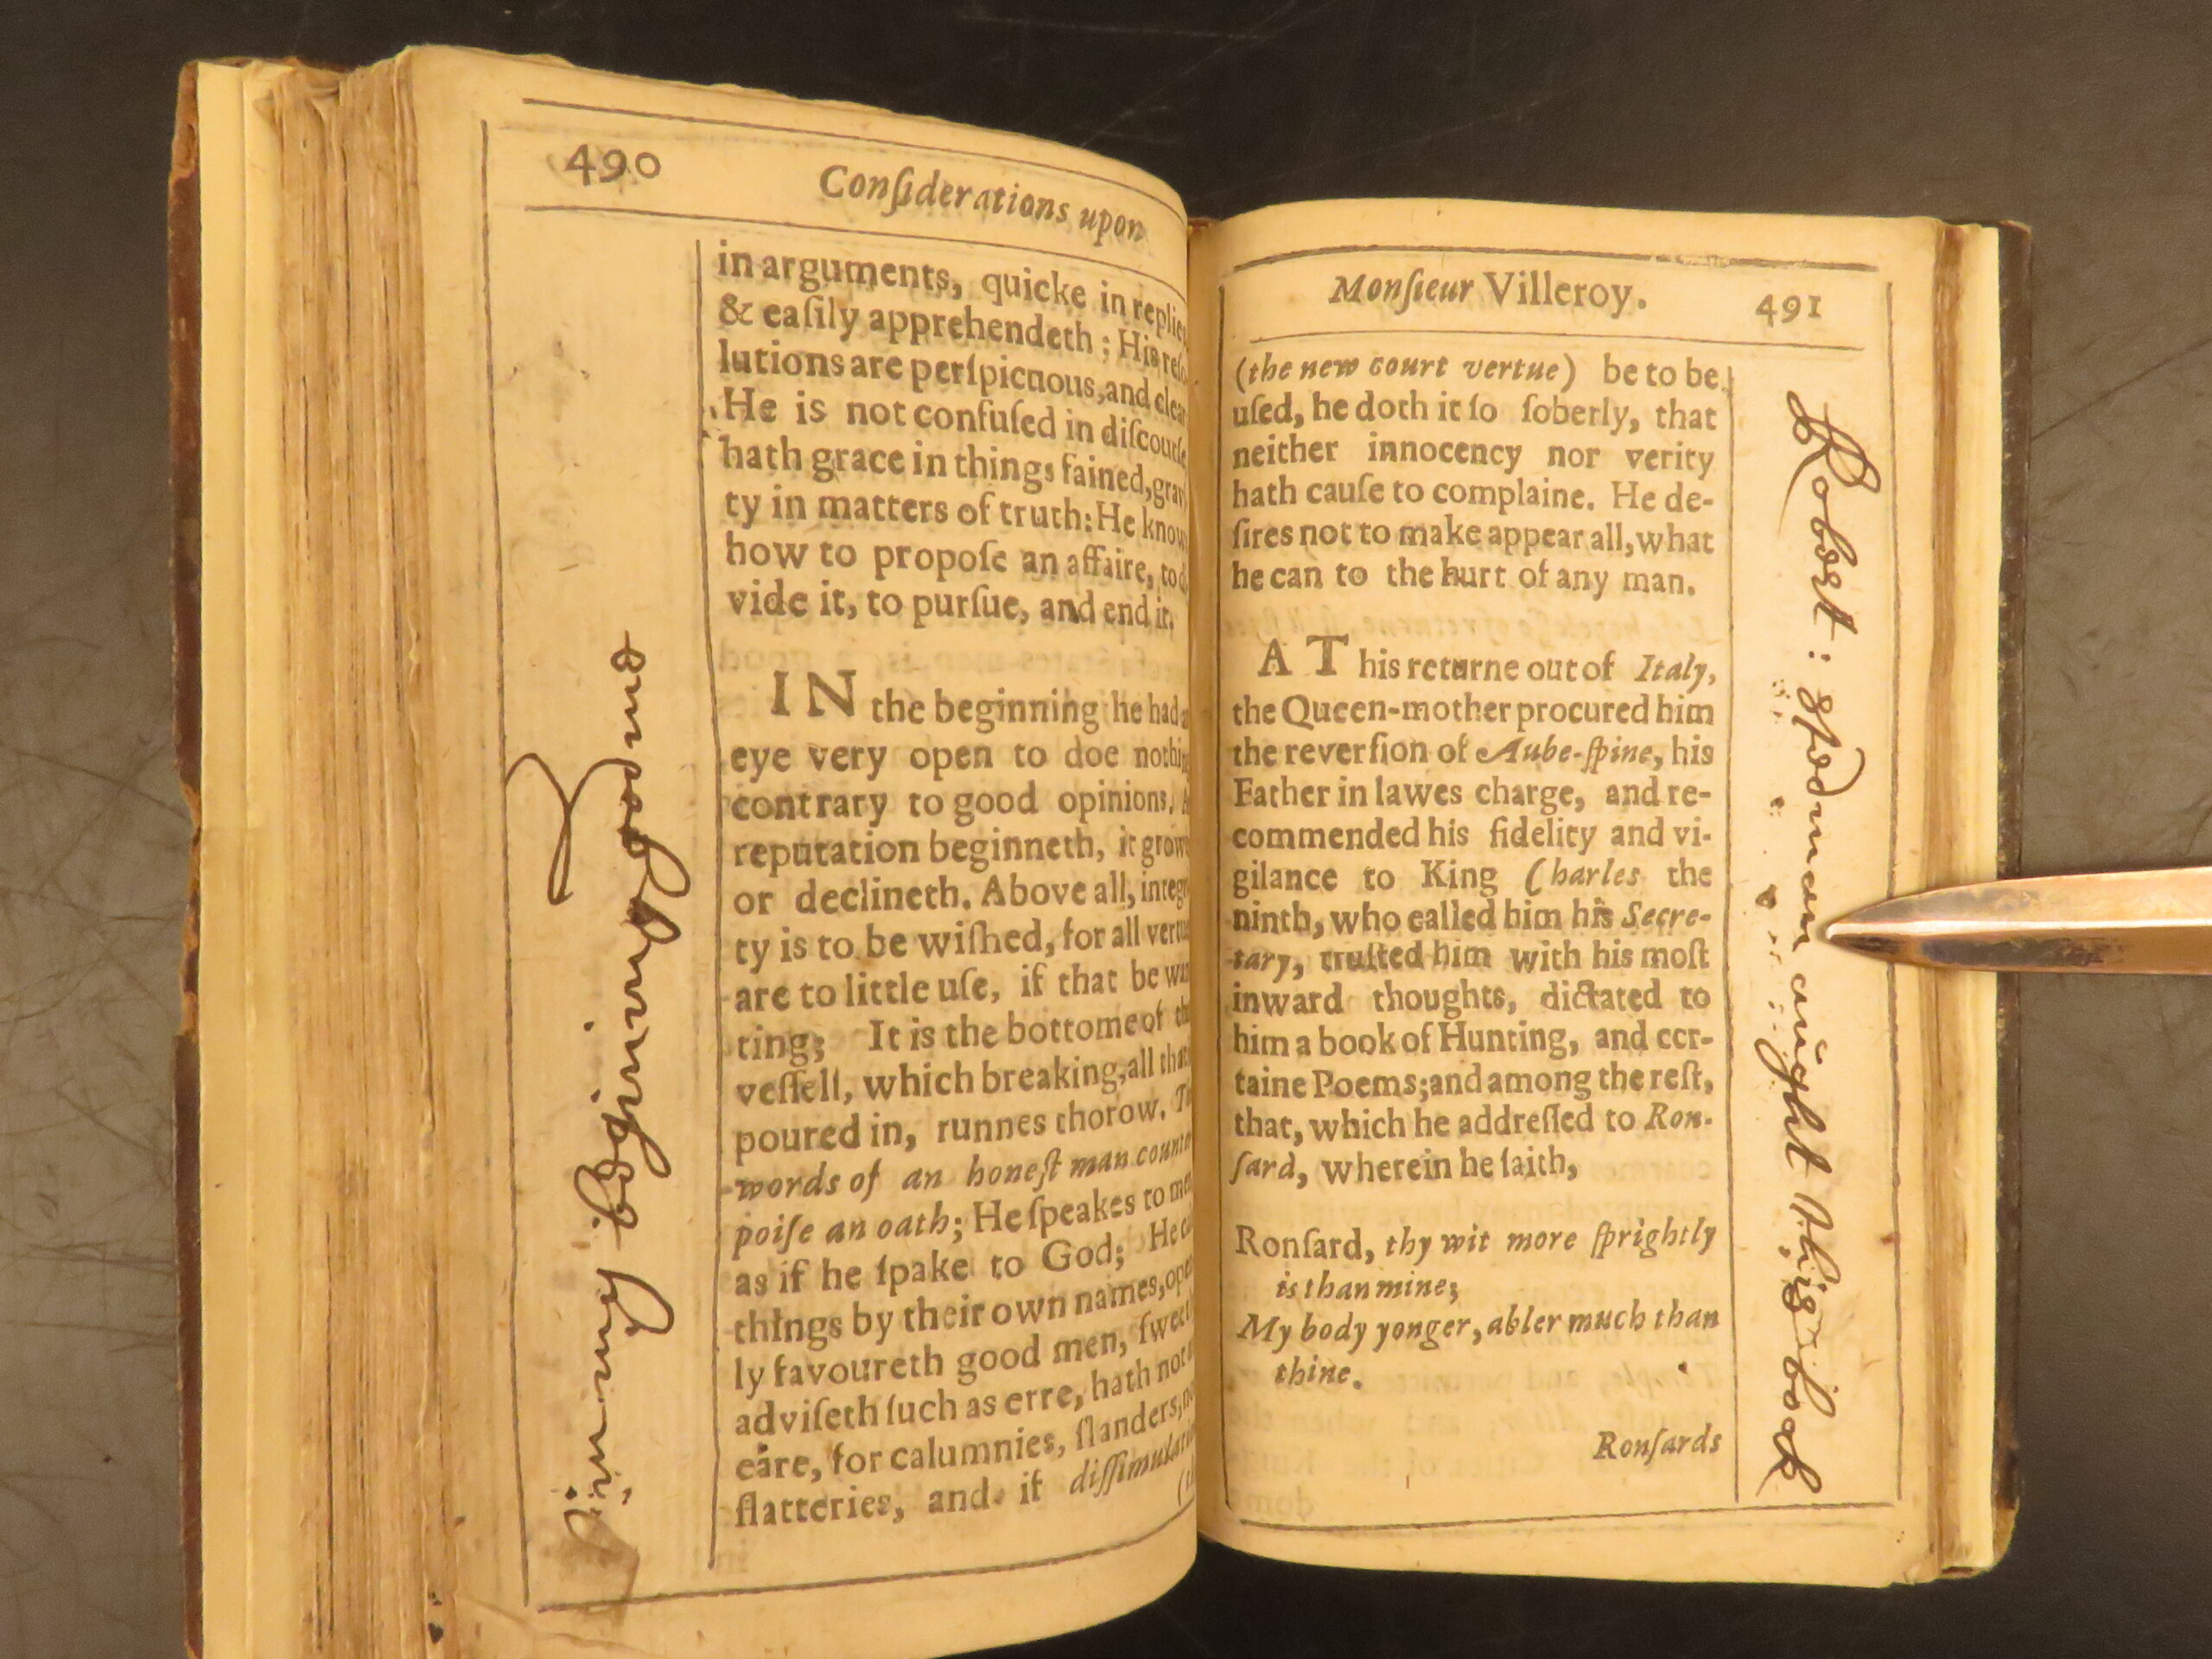 490
Conſiderations upon
in arguments, quicke in replie
& eaſily apprehendeth; His reſo
lutions are perſpicuous, and clear
He is not confuſed in diſcourſe
hath grace in things fained, gravi
ty in matters of truth: He know
how to propoſe an affaire, to d
vide it, to purſue, and end it.
IN the beginning he had a
eye very open to doe nothin
contrary to good opinions. A
reputation beginneth, it grow
or declineth. Above all, integri
ty is to be wiſhed, for all vertu
are to little uſe, if that be wan
ting; It is the bottome of th
veſſell, which breaking, all that
poured in, runnes thorow. Th
words of an honeſt man counte
poiſe an oath; He ſpeakes to me
as if he ſpake to God; He ca
things by their own names, ope
ly favoureth good men, ſweet
adviſeth ſuch as erre, hath not a
eare, for calumnies, ſlanders, no
flatteries, and if diſſimulati
(th
in my beginning
Monſieur Villeroy.
491
(the new court vertue) be to be
uſed, he doth it ſo ſoberly, that
neither innocency nor verity
hath cauſe to complaine. He de-
ſires not to make appear all, what
he can to the hurt of any man.
AT his returne out of Italy,
the Queen-mother procured him
the reverſion of Aube-ſpine, his
Father in lawes charge, and re-
commended his fidelity and vi-
gilance to King Charles the
ninth, who called him his Secre-
tary, truſted him with his moſt
inward thoughts, dictated to
him a book of Hunting, and cer-
taine Poems; and among the reſt,
that, which he addreſſed to Ron-
ſard, wherein he ſaith,
Ronſard, thy wit more ſprightly
is than mine;
My body yonger, abler much than
thine.
Ronſards
Robert: stedman aught this book